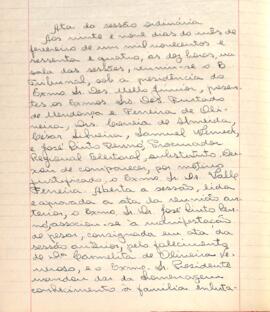 Ata da sessão ordinária
Aos vinte e nove dias do mês de
fevereiro de um mil novecentos e
sessenta e quatro, às dez horas, na
sala das sessões, reuniu-se o
Tribunal, sob a presidência do
Exmo Sr. Des. Mello Júnior, presen-
tes os Exmos Srs. Des. Furtado
de Mendonça e Ferreira de Oli-
veira, Drs. Correia de Almeida,
Cesar Silveira, Samuel Werneck,
e José Pinto Renó, Procurador
Regional Eleitoral, substituto. Dei-
xou de comparecer, por motivo
justificado, o Exmo Sr. Dr. Valle
Ferreira. Aberta a sessão, lida
e aprovada a ata da reunião an-
terior, o Exmo Sr. Dr. José Pinto Re-
nó associou-se à manifestação
de pesar, consignada em ata da
sessão anterior, pelo falecimento
de Da. Carmelita de Oliveira
e o Exmo. Sr. Presidente
mandou dar da homenagem
conhecimento à família enluta-